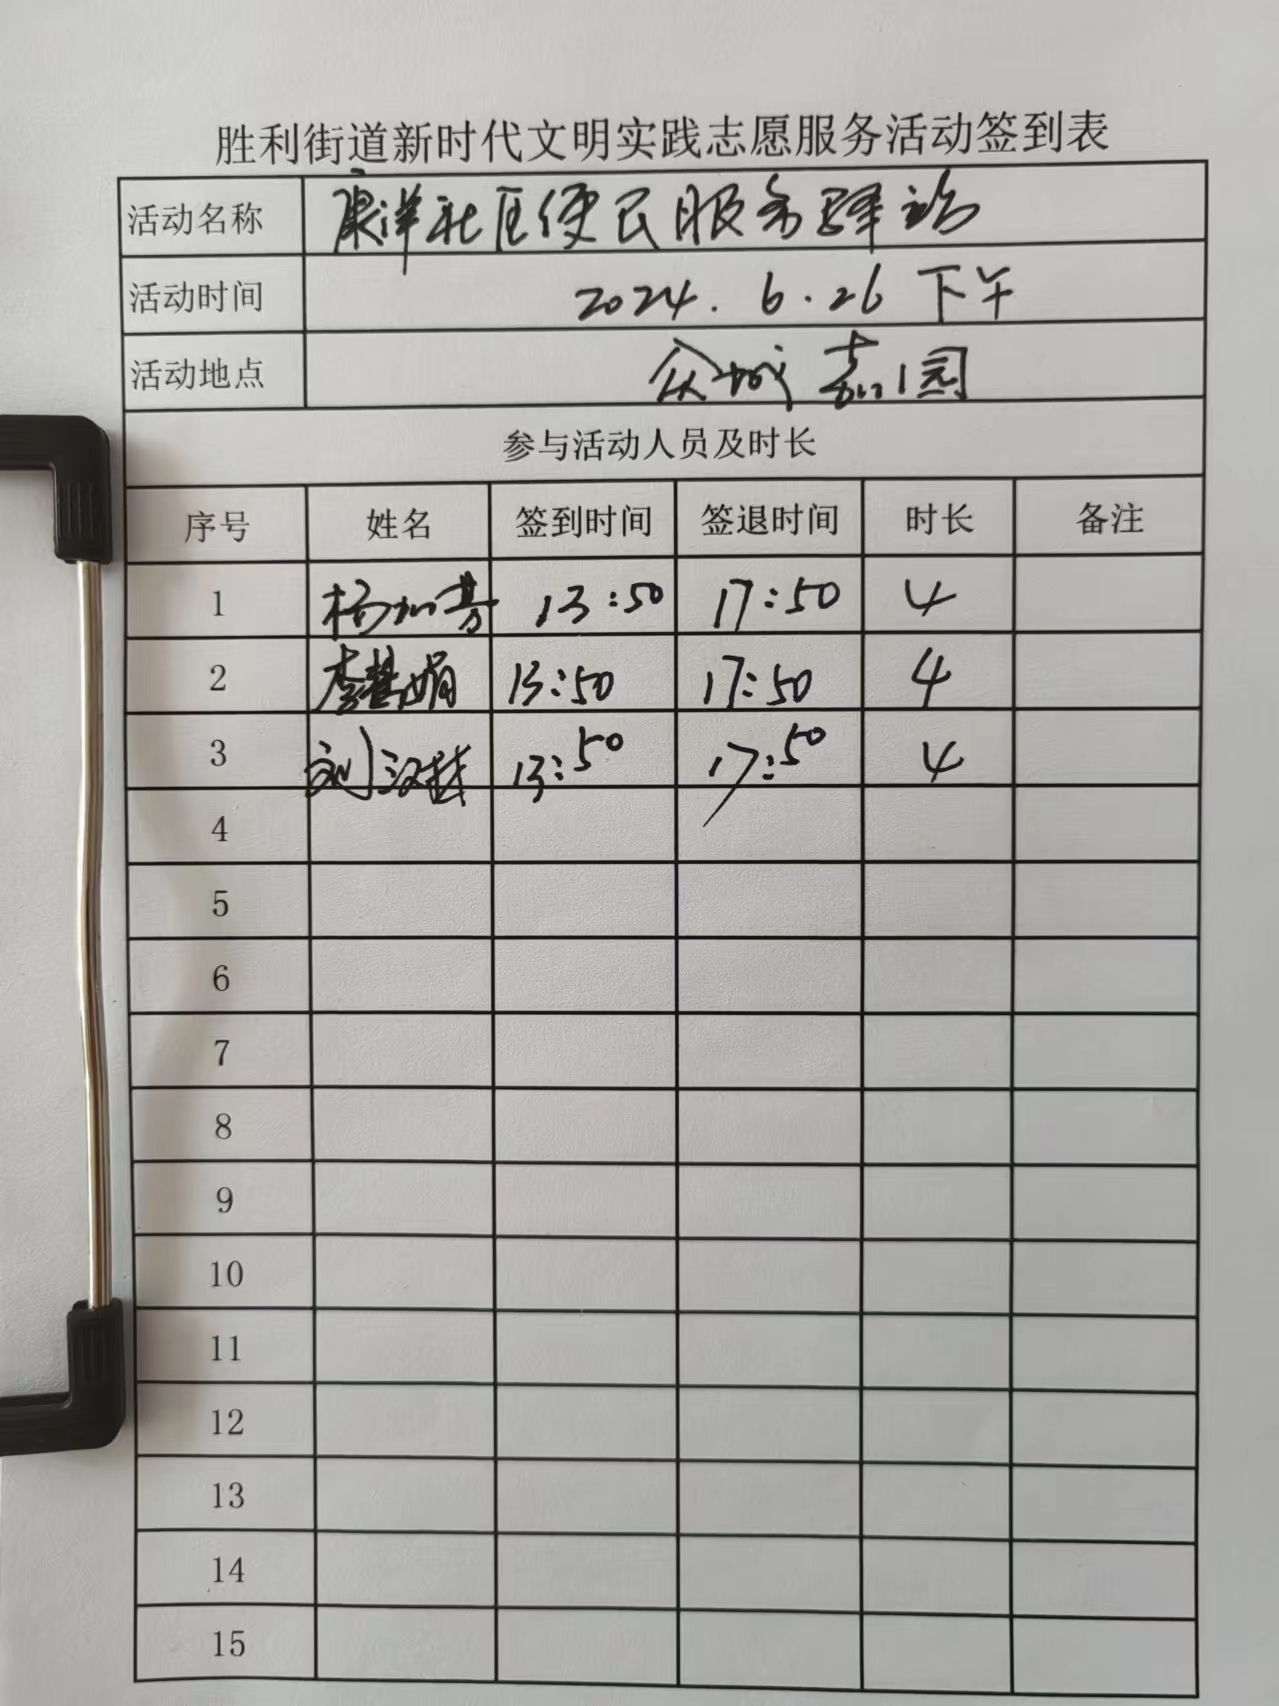 胜利街道新时代文明实践志愿服务活动签到表
活动名称 康洋社区便民服务驿站
活动时间 2024.6.26 下午
活动地点 众城嘉园
参与活动人员及时长
序号 姓名 签到时间 签退时间 时长 备注
1 杨加芳 13:50 17:50 4
2 李慧娟 13:50 17:50 4
3 刘汉林 13:50 17:50 4
4
5
6
7
8
9
10
11
12
13
14
15